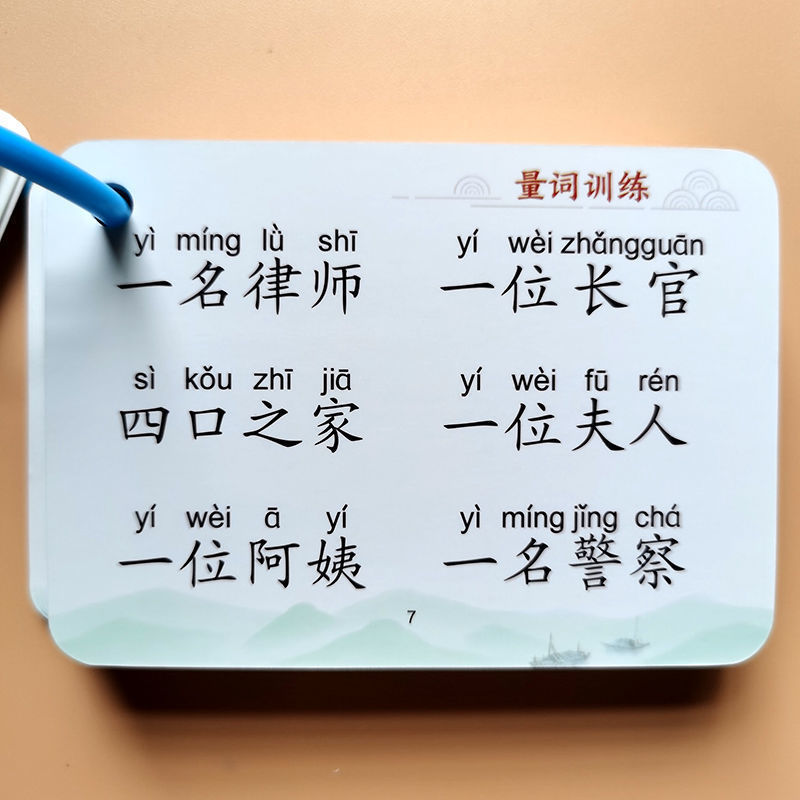 量词训练
yì míng lǜ shī yí wèi zhǎngguān
一名律师 一位长官
sì kǒu zhī jiā yí wèi fū rén
四口之家 一位夫人
yí wèi ā yí yì míng jǐng chá
一位阿姨 一名警察
7